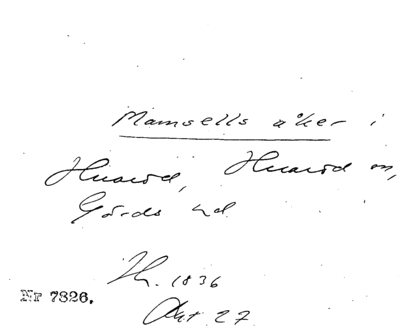 Mamsells åker i
Huaröd, Huaröd sn,
Gärds hd.
H. 1836
Akt 27
Nr 7826.